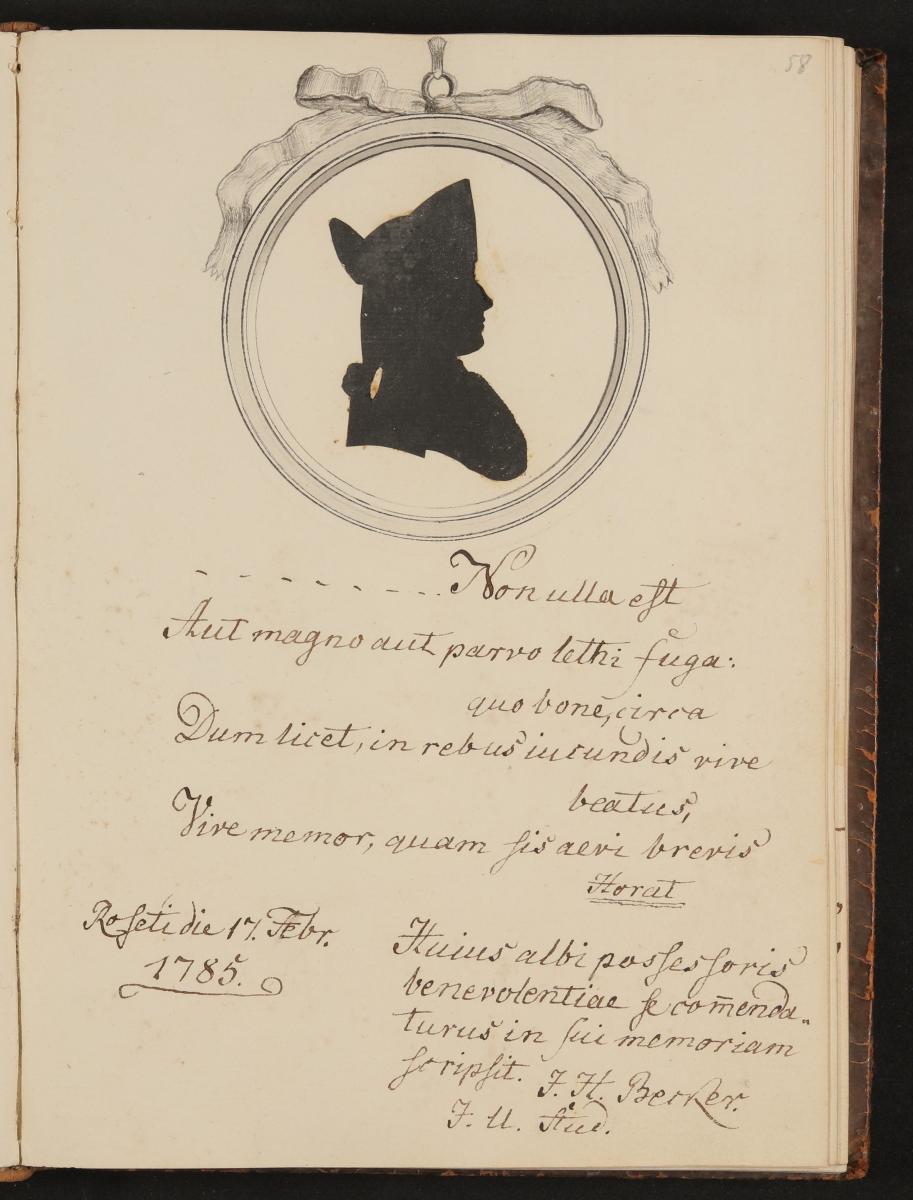 58
- - - - - - - Non ulla est
Aut magno aut parvo lethi fuga:
quo bone, circa
Dum licet, in rebus iucundis vive
beatus,
Vive memor, quam sis aevi brevis
Horat
Roseti die 17. Febr.
1785.
Huius albi possessoris
benevolentiae se com̄enda„
turus in sui memoriam
scripsit. J. H. Becker.
J. U. Stud.